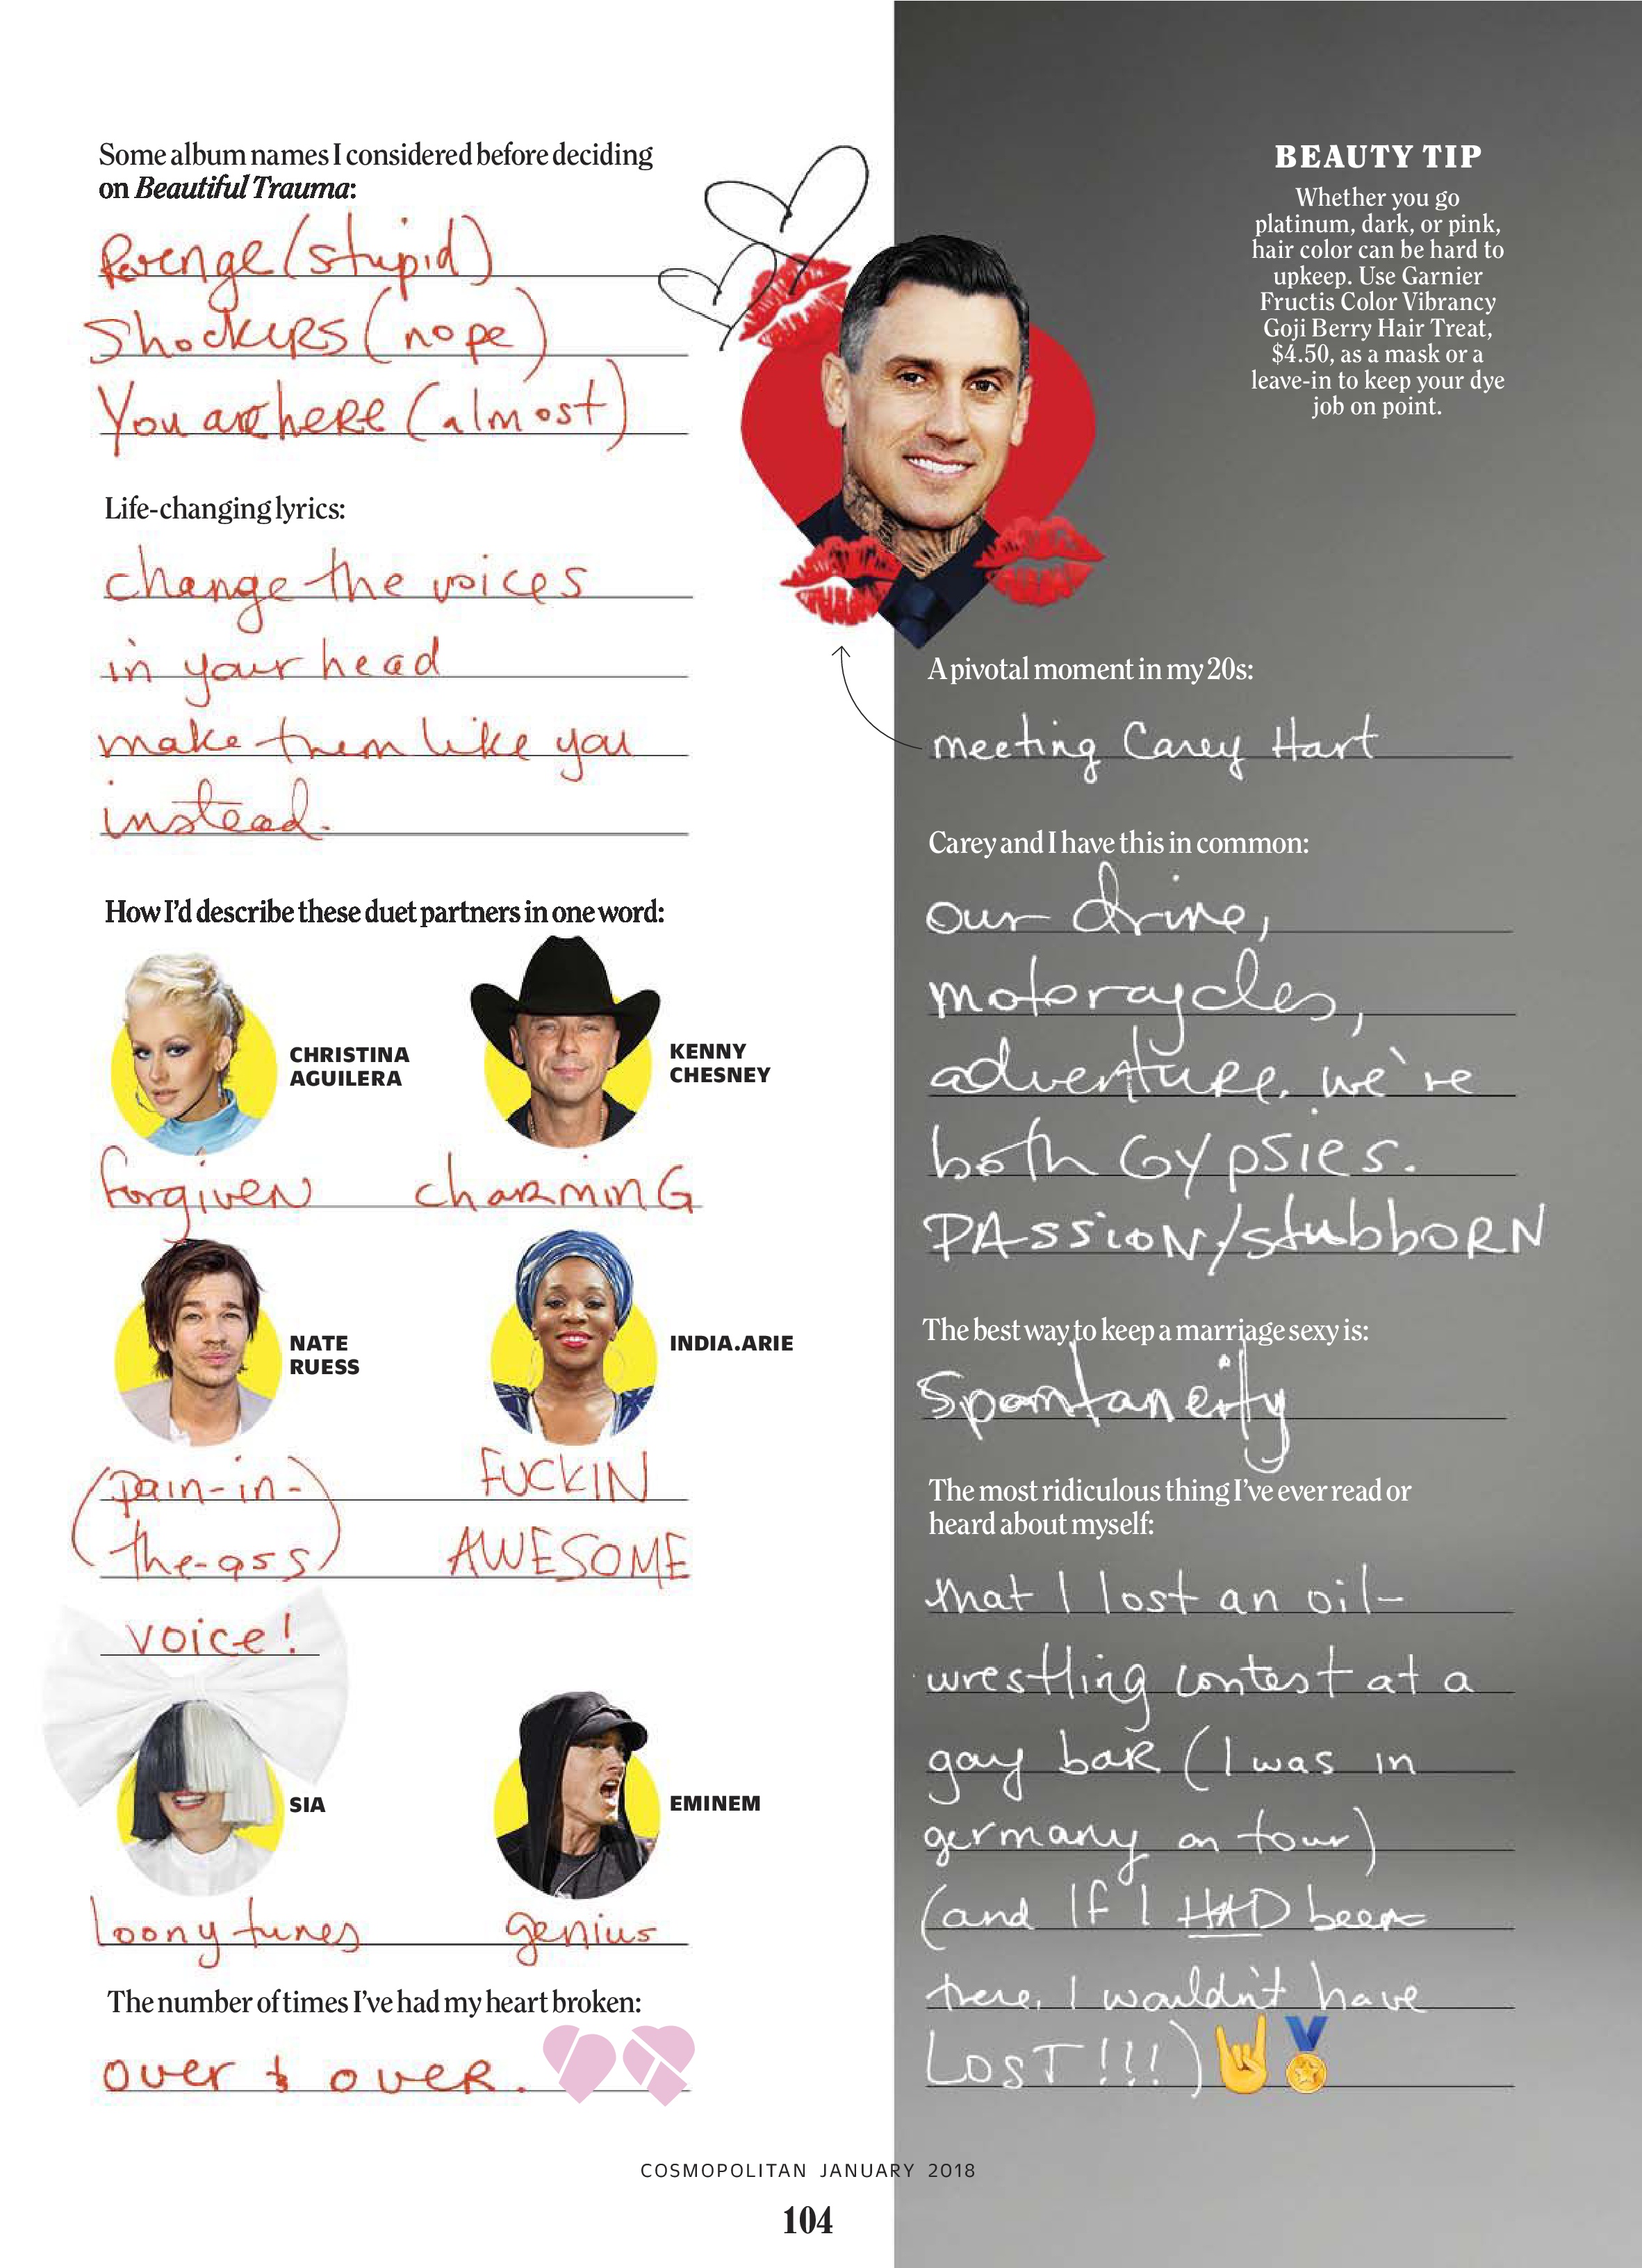 Some album names I considered before deciding
on Beautiful Trauma:
Revenge (stupid)
Shockers (nope)
You are here (almost)
Life-changing lyrics:
change the voices
in your head
make them like you
instead.
How I'd describe these duet partners in one word:
CHRISTINA
AGUILERA
forgiven
KENNY
CHESNEY
charminG
NATE
RUESS
(pain-in-
the-ass)
voice!
INDIA.ARIE
FUCKIN
AWESOME
SIA
loony tunes
EMINEM
genius
The number of times I've had my heart broken:
over & over.
BEAUTY TIP
Whether you go
platinum, dark, or pink,
hair color can be hard to
upkeep. Use Garnier
Fructis Color Vibrancy
Goji Berry Hair Treat,
$4.50, as a mask or a
leave-in to keep your dye
job on point.
A pivotal moment in my 20s:
meeting Carey Hart
Carey and I have this in common:
our drive,
motorcycles,
adventure. we're
both Gypsies.
PAssioN/stubboRN
The best way to keep a marriage sexy is:
Spontaneity
The most ridiculous thing I've ever read or
heard about myself:
that I lost an oil-
wrestling contest at a
gay baR (I was in
germany on tour)
(and If I HAD been
there, I wouldn't have
LOST!!!)🤘🏅
COSMOPOLITAN JANUARY 2018
104